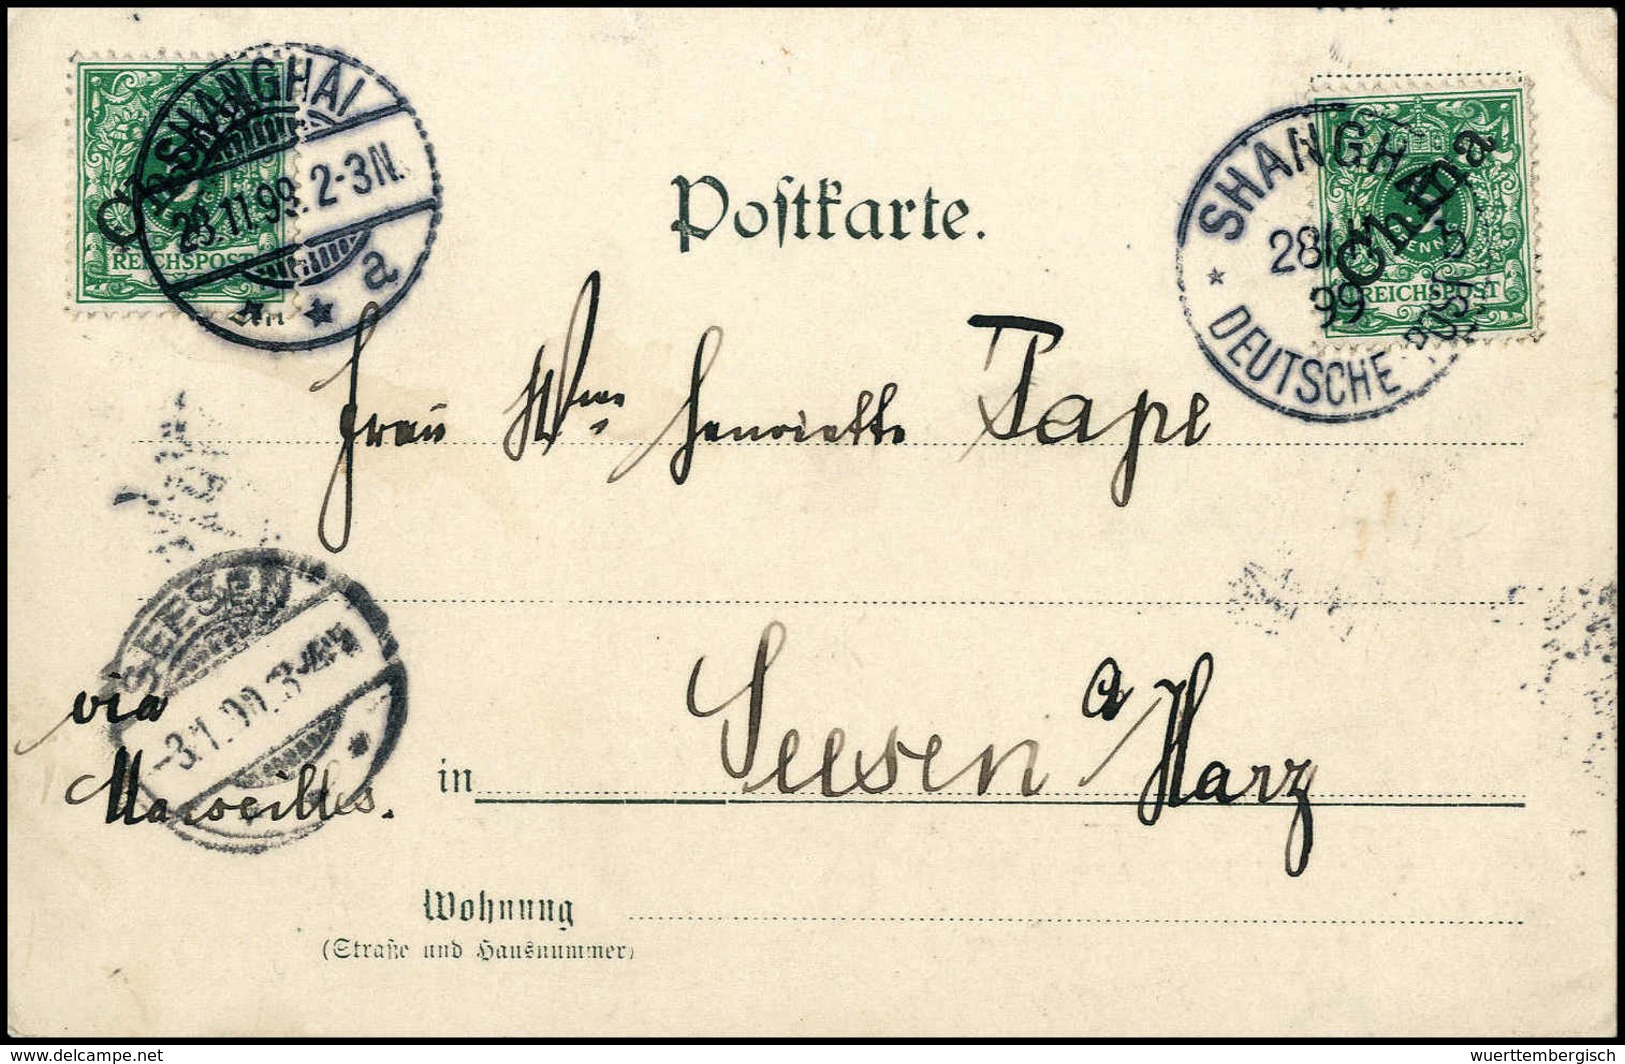 SHANGHAI
28.11.99. 2-3N.
a
China
REICHSPOST
An
Postkarte.
SHANGHAI
28/11
99
DEUTSCHE POST
China
REICHSPOST
Frau Wwe Henriette Tape
SEESEN
via
Marseilles.
in Seesen a/Harz
Wohnung
(Straße und Hausnummer)
www.delcampe.net
wuerttembergisch